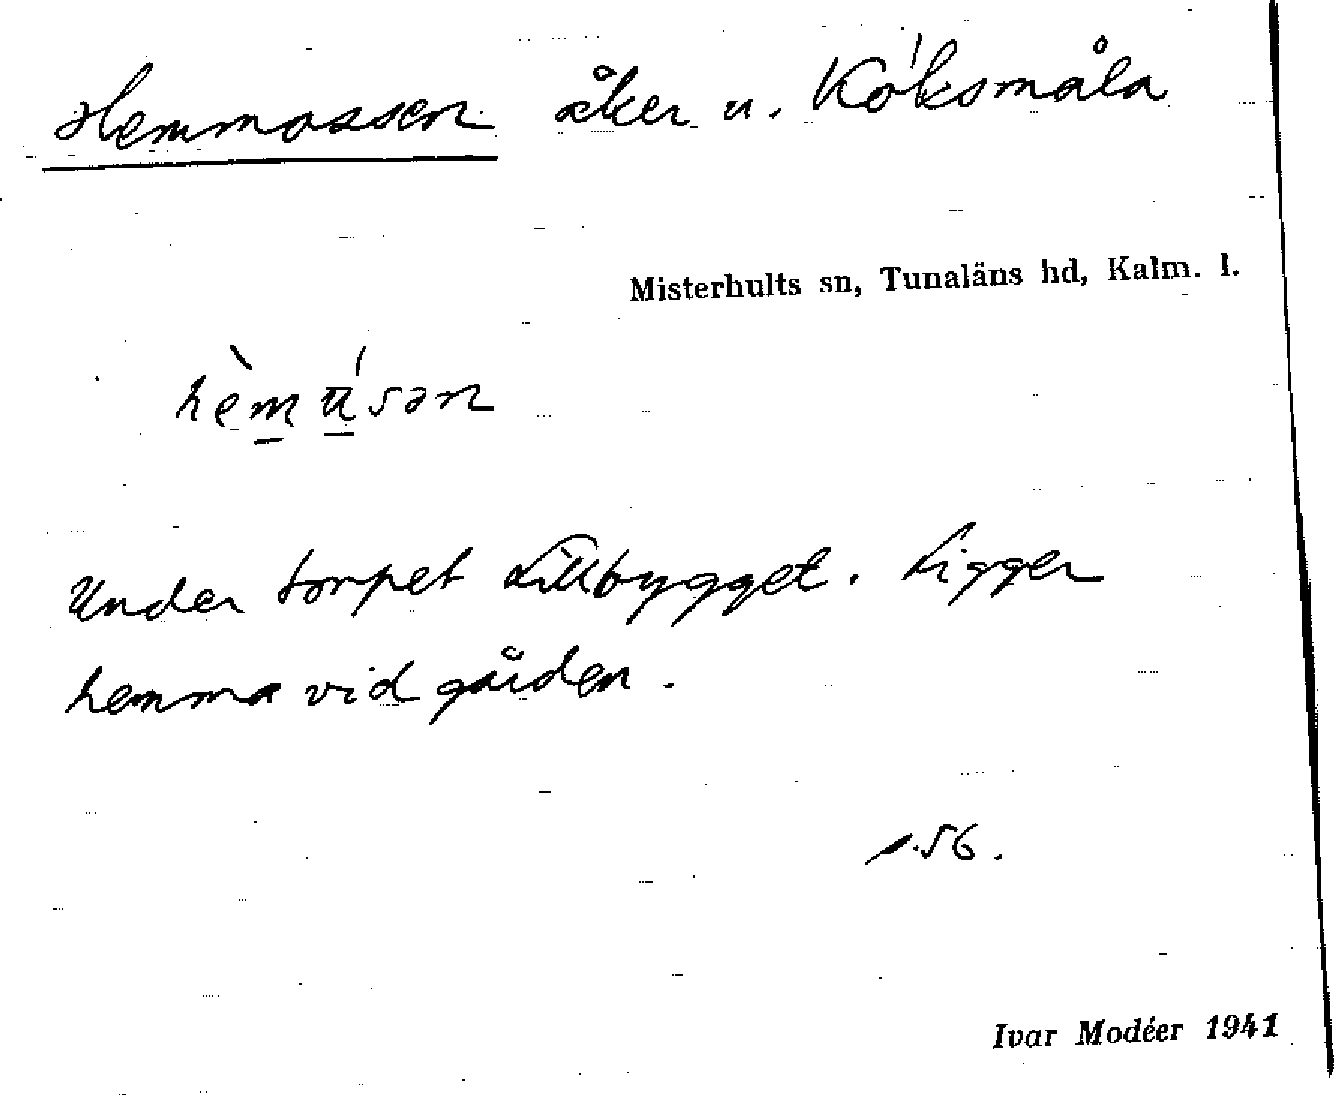 Hemmossen åker u. Köksmåla
Misterhults sn, Tunaläns hd, Kalm. l.
Under torpet Lillbygget. Ligger
hemma vid gården.
s. 56.
Ivar Modéer 1941